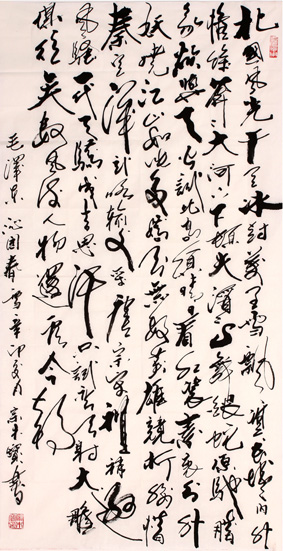 北國風光千里冰封萬里雪飄望長城內外
惟餘莽莽大河上下頓失滔滔山舞銀蛇原馳蠟
象欲與天公試比高須晴日看紅裝素裹分外
妖嬈江山如此多嬌引無數英雄競折腰惜
秦皇漢武略輸文采唐宗宋祖稍遜
風騷一代天驕成吉思汗只識彎弓射大鵰
俱往矣數風流人物還看今朝
毛澤東沁園春雪辛卯夏月